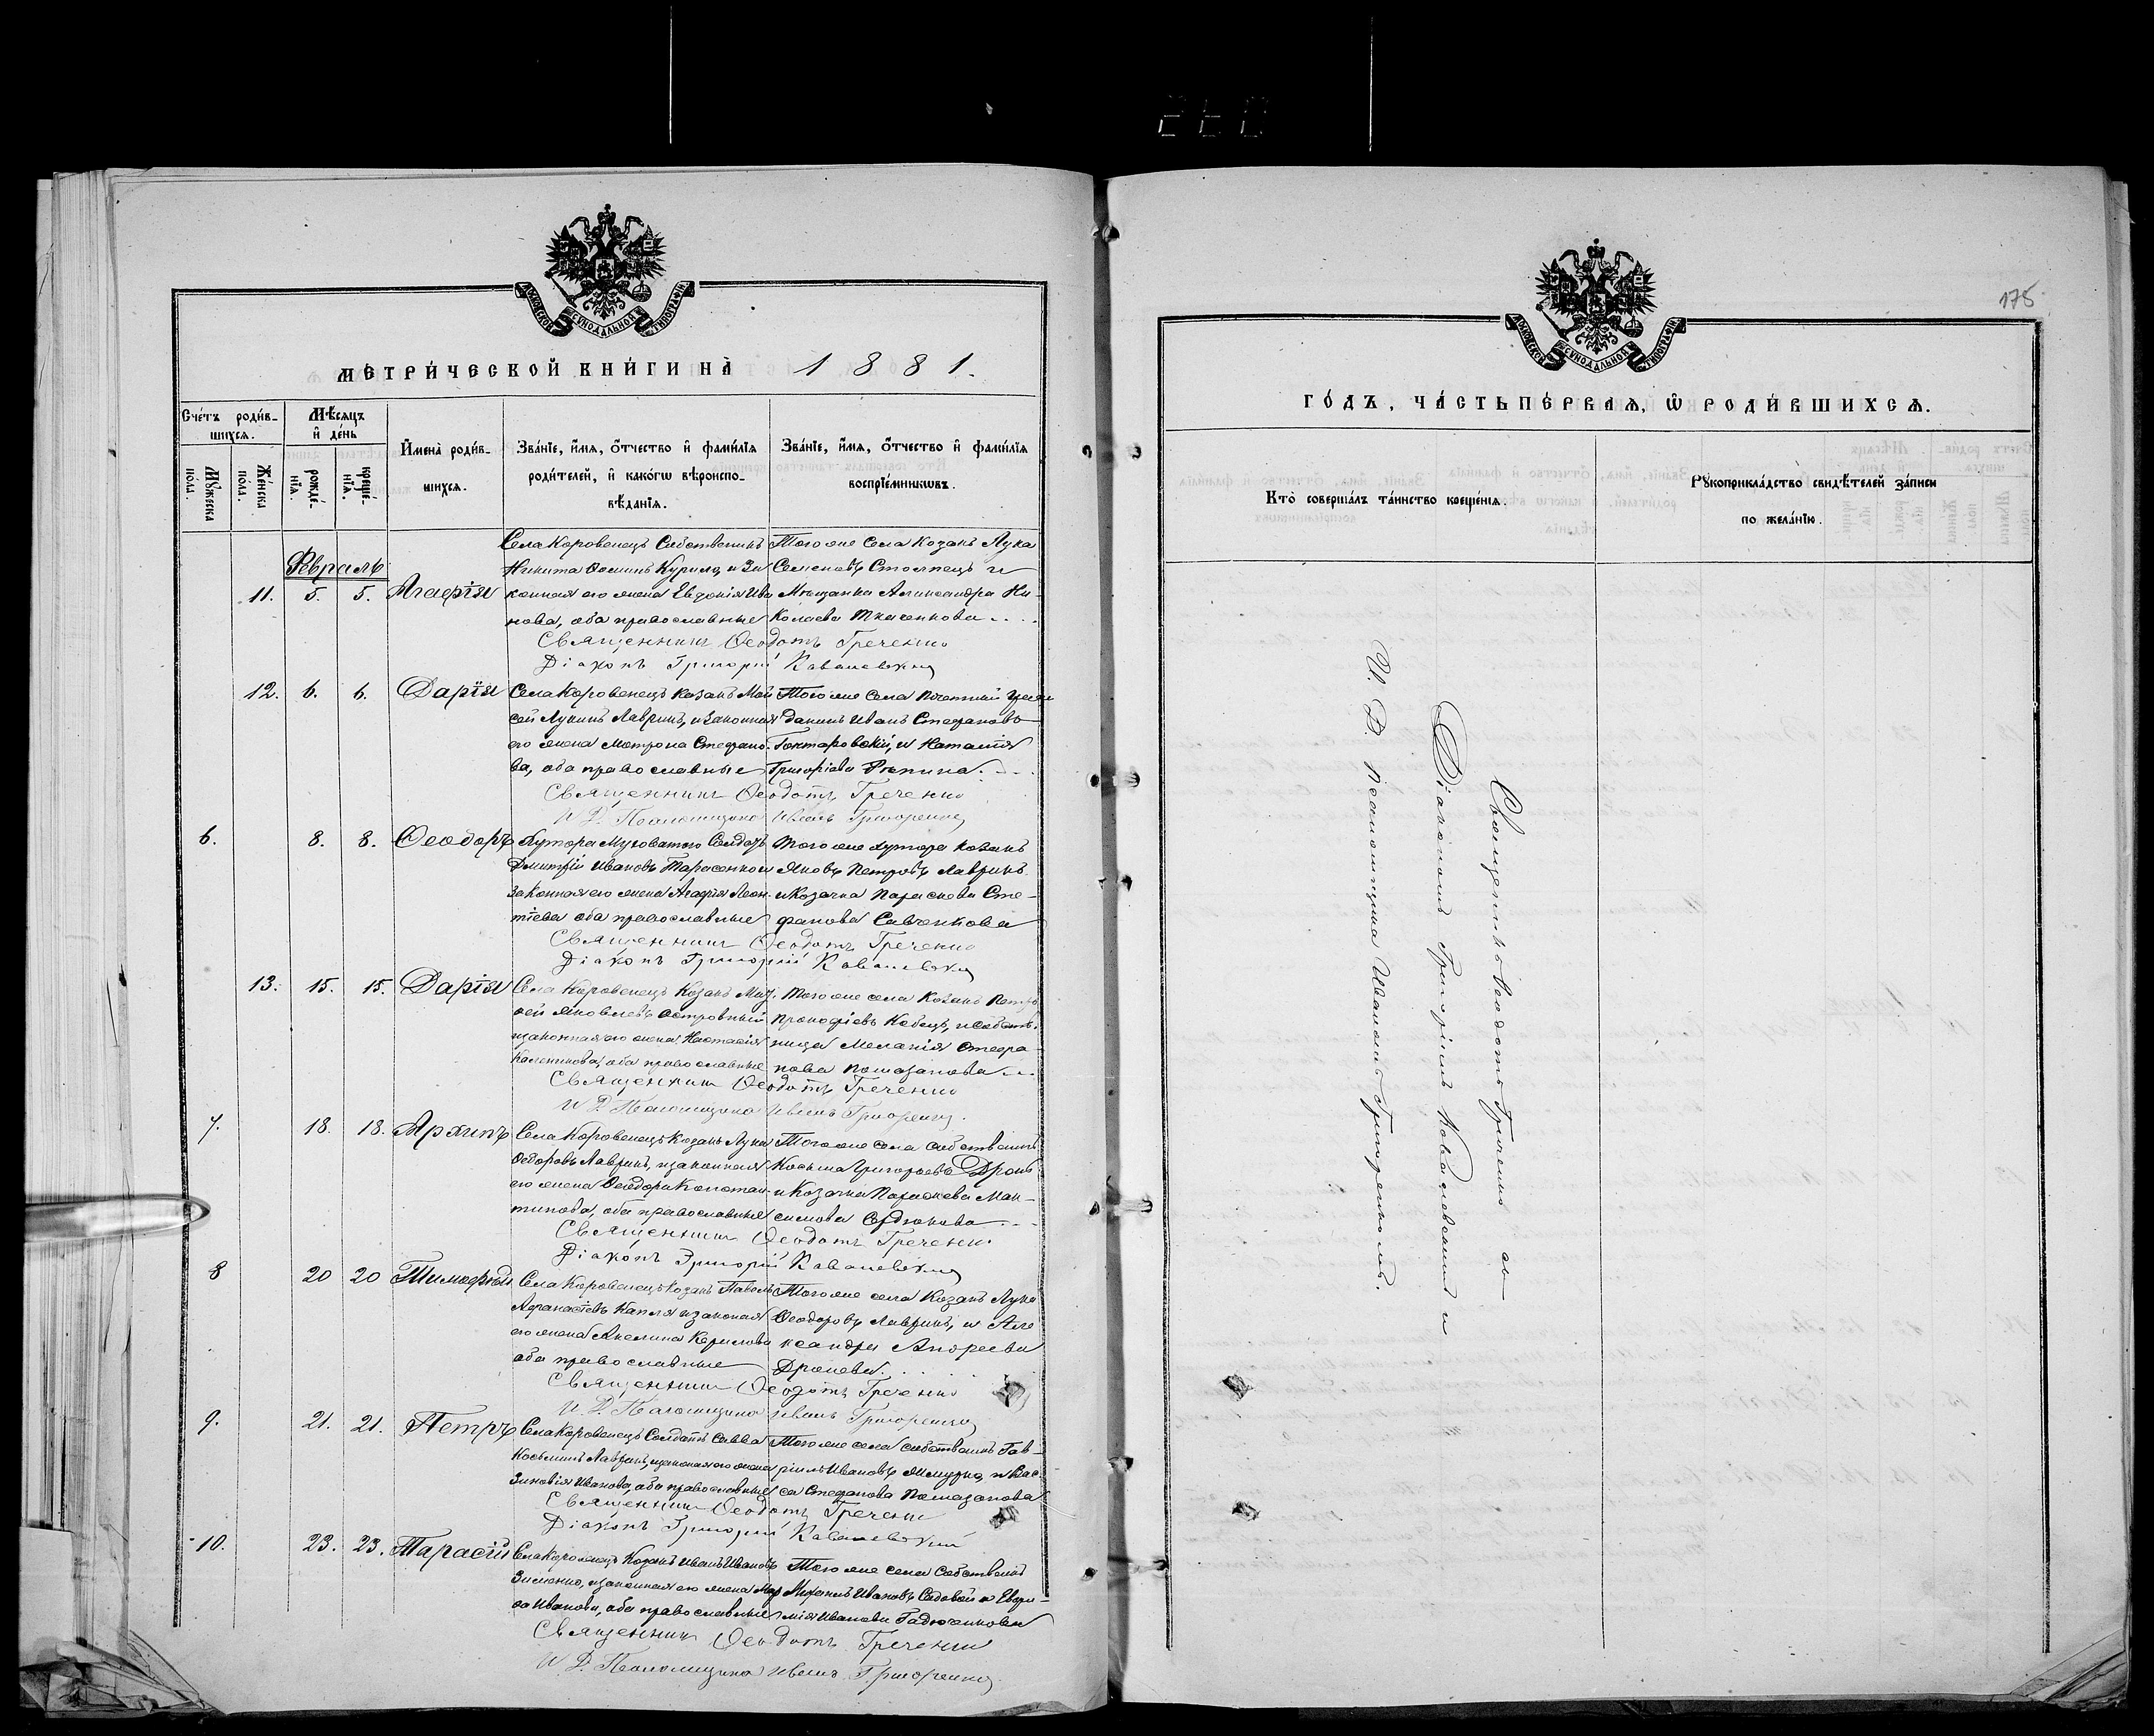 МОСКОВСКОЙ СѴНОДАЛЬНОЙ ТИПОГРАФІИ
МЕТРИ́ЧЕСКОЙ КНИ́ГИ НА̀ 1881.
Сче́тъ роди́в-
шихсѧ.
Мꙋ́жеска
по́ла.
Же́нска
по́ла.
Мѣ́сѧцъ
и҆ де́нь
рожде́-
нїѧ.
креще́-
нїѧ.
И҆мена̀ роди́в-
шихсѧ.
Зва́нїе, и҆́мѧ, ѻ҆́тчество и҆ фами́лїѧ
роди́телей, и҆ како́гѡ вѣроиспо-
вѣ́данїѧ.
Зва́нїе, и҆́мѧ, ѻ҆́тчество и҆ фами́лїѧ
воспрїе́мникѡвъ.
Февраль
11. 5. 5. Агафія
Села Коровенецъ Собственникъ
Никита Ѳоминъ Курило, и За
конная его жена Евдокія Ива
нова, оба православные
Того же Села Козакъ Лука
Семеновъ Столпецъ и
Мѣщанка Александра Ни-
колаева Ткаченкова
Священникъ Ѳеодотъ Греченко
Діаконъ Григорій Ковалевскій
12. 6. 6. Дарія
Села Коровенецъ Козакъ Мой
сей Лукинъ Лавринъ, и Законная
его жена Матрона Стефано-
ва, оба православные
Того же Села Почетный Граж
данинъ Иванъ Стефановъ
и Наталія
Григоріева Рѣпина.
Священникъ Ѳеодотъ Греченко
И. Д. Псаломщика Иванъ Григоренко
6. 8. 8. Ѳеодоръ
Хутора Муховатого Солдатъ
Дмитрій Ивановъ Тарасенко и
Законная его жена Агафія Леон-
тіева оба православные
Того же хутора козакъ
Яковъ Петровъ Лавринъ
и Козачка Параскева Сте-
фанова Савченкова
Священникъ Ѳеодотъ Греченко
Діаконъ Григорій Ковалевскій
13. 15. 15. Дарія
Села Коровенецъ Козакъ
сей Яковлевъ Островный
и законная его жена Настасія
Каленикова, оба православные
Того же села Козакъ Петръ
Прокофіевъ Кобецъ, и Собств.
ница Меланія Стефа-
нова Помазанова
Священникъ Ѳеодотъ Греченко
И. Д. Псаломщика Иванъ Григоренко.
7. 18. 18. Архипъ
Села Коровенецъ Козакъ Лука
Ѳедоровъ Лавринъ, и законная
его жена Ѳеодора Констан-
тинова, оба православные
Того же села собственникъ
Косьма Григорьевъ Дронь
и Козачка Параскева Мак-
симова Сердюкова
Священникъ Ѳеодотъ Греченко
Діаконъ Григорій Ковалевскій
8 20 20 Тимофей
Села Коровенецъ Козакъ Павелъ
Афанасіевъ Капля и законная
его жена Акелина Керилова
оба православные
Того же села Козакъ Лука
Ѳеодоровъ Лавринъ, и Але
ксандра Андреева
Дронева.
Священникъ Ѳеодотъ Греченко
И. Д. Псаломщика Иванъ Григоренко
9. 21. 21. Петръ
Села Коровенецъ Солдатъ Савва
Косьминъ Лавринъ, и законная его жена
Зиновія Иванова, оба православные
Того же села собственникъ Гав-
ріилъ Ивановъ и Вас-
са Стефанова Помазанова
Священникъ Ѳеодотъ Греченко
Діаконъ Григорій Ковалевскій
10. 23. 23. Тарасій
Села Коровенецъ Козакъ Иванъ Ивановъ
Зименко, и законная его жена Мар
ѳа Иванова, оба православные
Того же села Собственникъ
Михаилъ Ивановъ Садовой и Евфи-
мія Иванова Гадюченкова
Священникъ Ѳеодотъ Греченко
И. Д. Псаломщика Иванъ Григоренко
175
МОСКОВСКОЙ СѴНОДАЛЬНОЙ ТИПОГРАФІИ
ГО́ДЪ, ЧА́СТЬ ПЕ́РВАѦ, Ѡ҆ РОДИ́ВШИХСѦ.
Кто̀ соверша́лъ та́инство креще́нїѧ.
Рꙋкоприкла́дство свидѣ́телей за́писи
по жела́нїю.
Священникъ Ѳеодотъ Греченко съ
Діакономъ Григоріемъ Ковалевскимъ и
И. Д. Псаломщика Иваномъ Григоренкомъ.